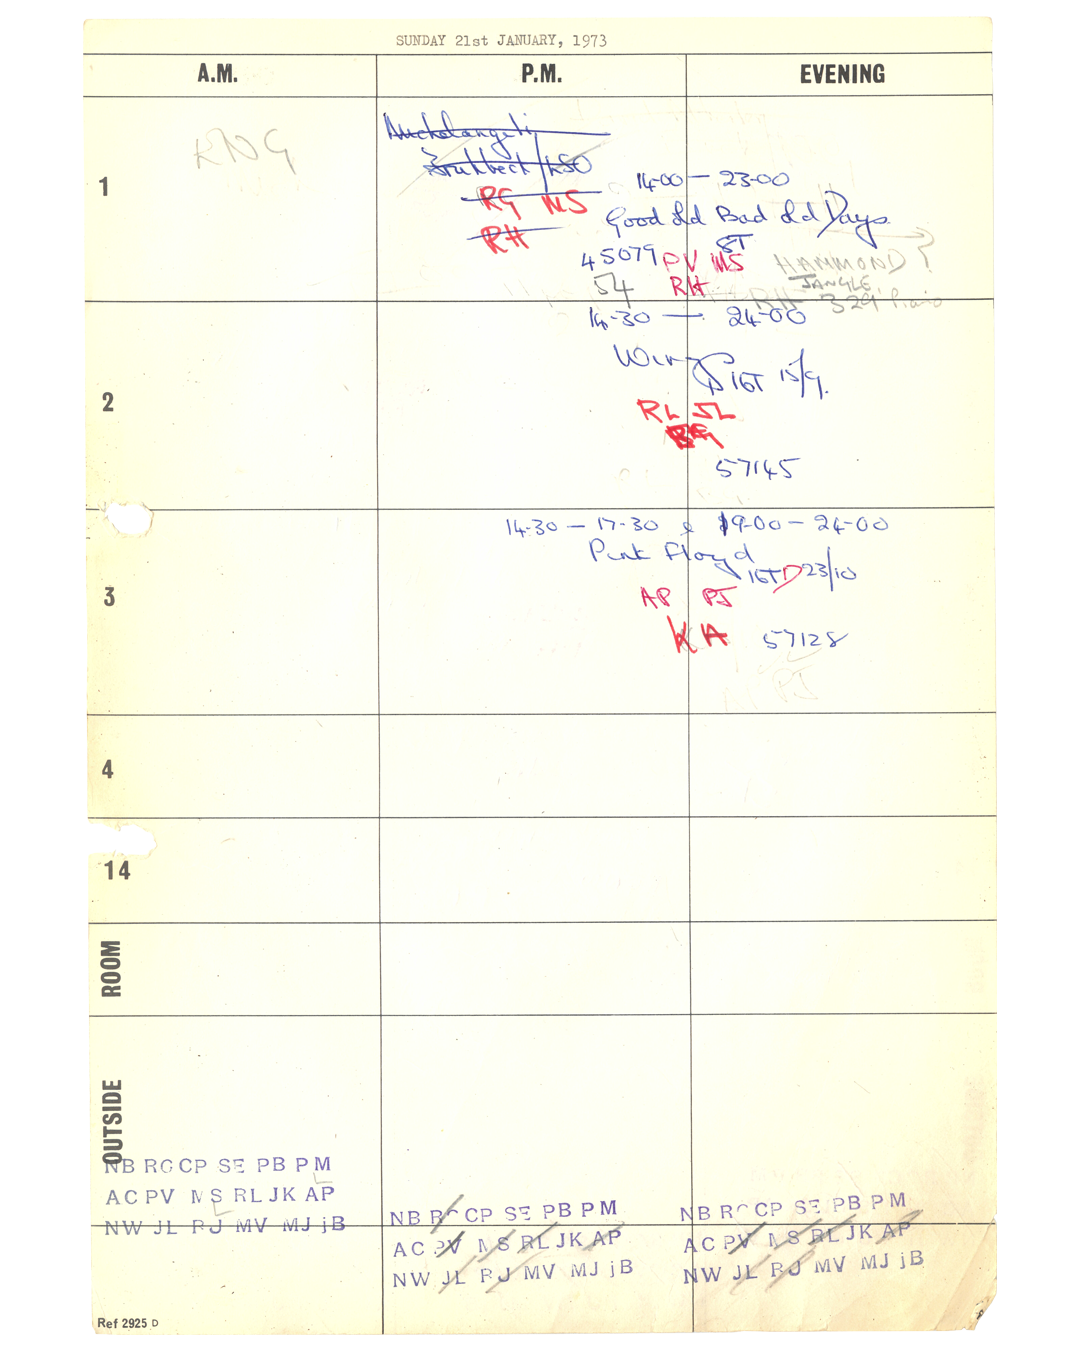 SUNDAY 21st JANUARY, 1973
A.M. P.M. EVENING
1
RNG
Michelangeli
Fruhbeck / LSO
RG MS
RH
14-00 — 23-00
Good Old Bad Old Days
8T
45079 PV MS
54 RH
HAMMOND ?
JANGLE
RH 329 Piano
2
14-30 — 24-00
Wings 16T 15/9.
RL JL
57145
3
14-30 — 17-30 & 19-00 — 24-00
Pink Floyd
16T D 23/10
AP PJ
KA 57128
PJ
4
14
ROOM
OUTSIDE
NB RG CP SE PB PM
AC PV MS RL JK AP
NW JL RJ MV MJ jB
NB RG CP SE PB PM
AC PV MS RL JK AP
NW JL RJ MV MJ jB
NB RG CP SE PB PM
AC PV MS RL JK AP
NW JL RJ MV MJ jB
Ref 2925 D